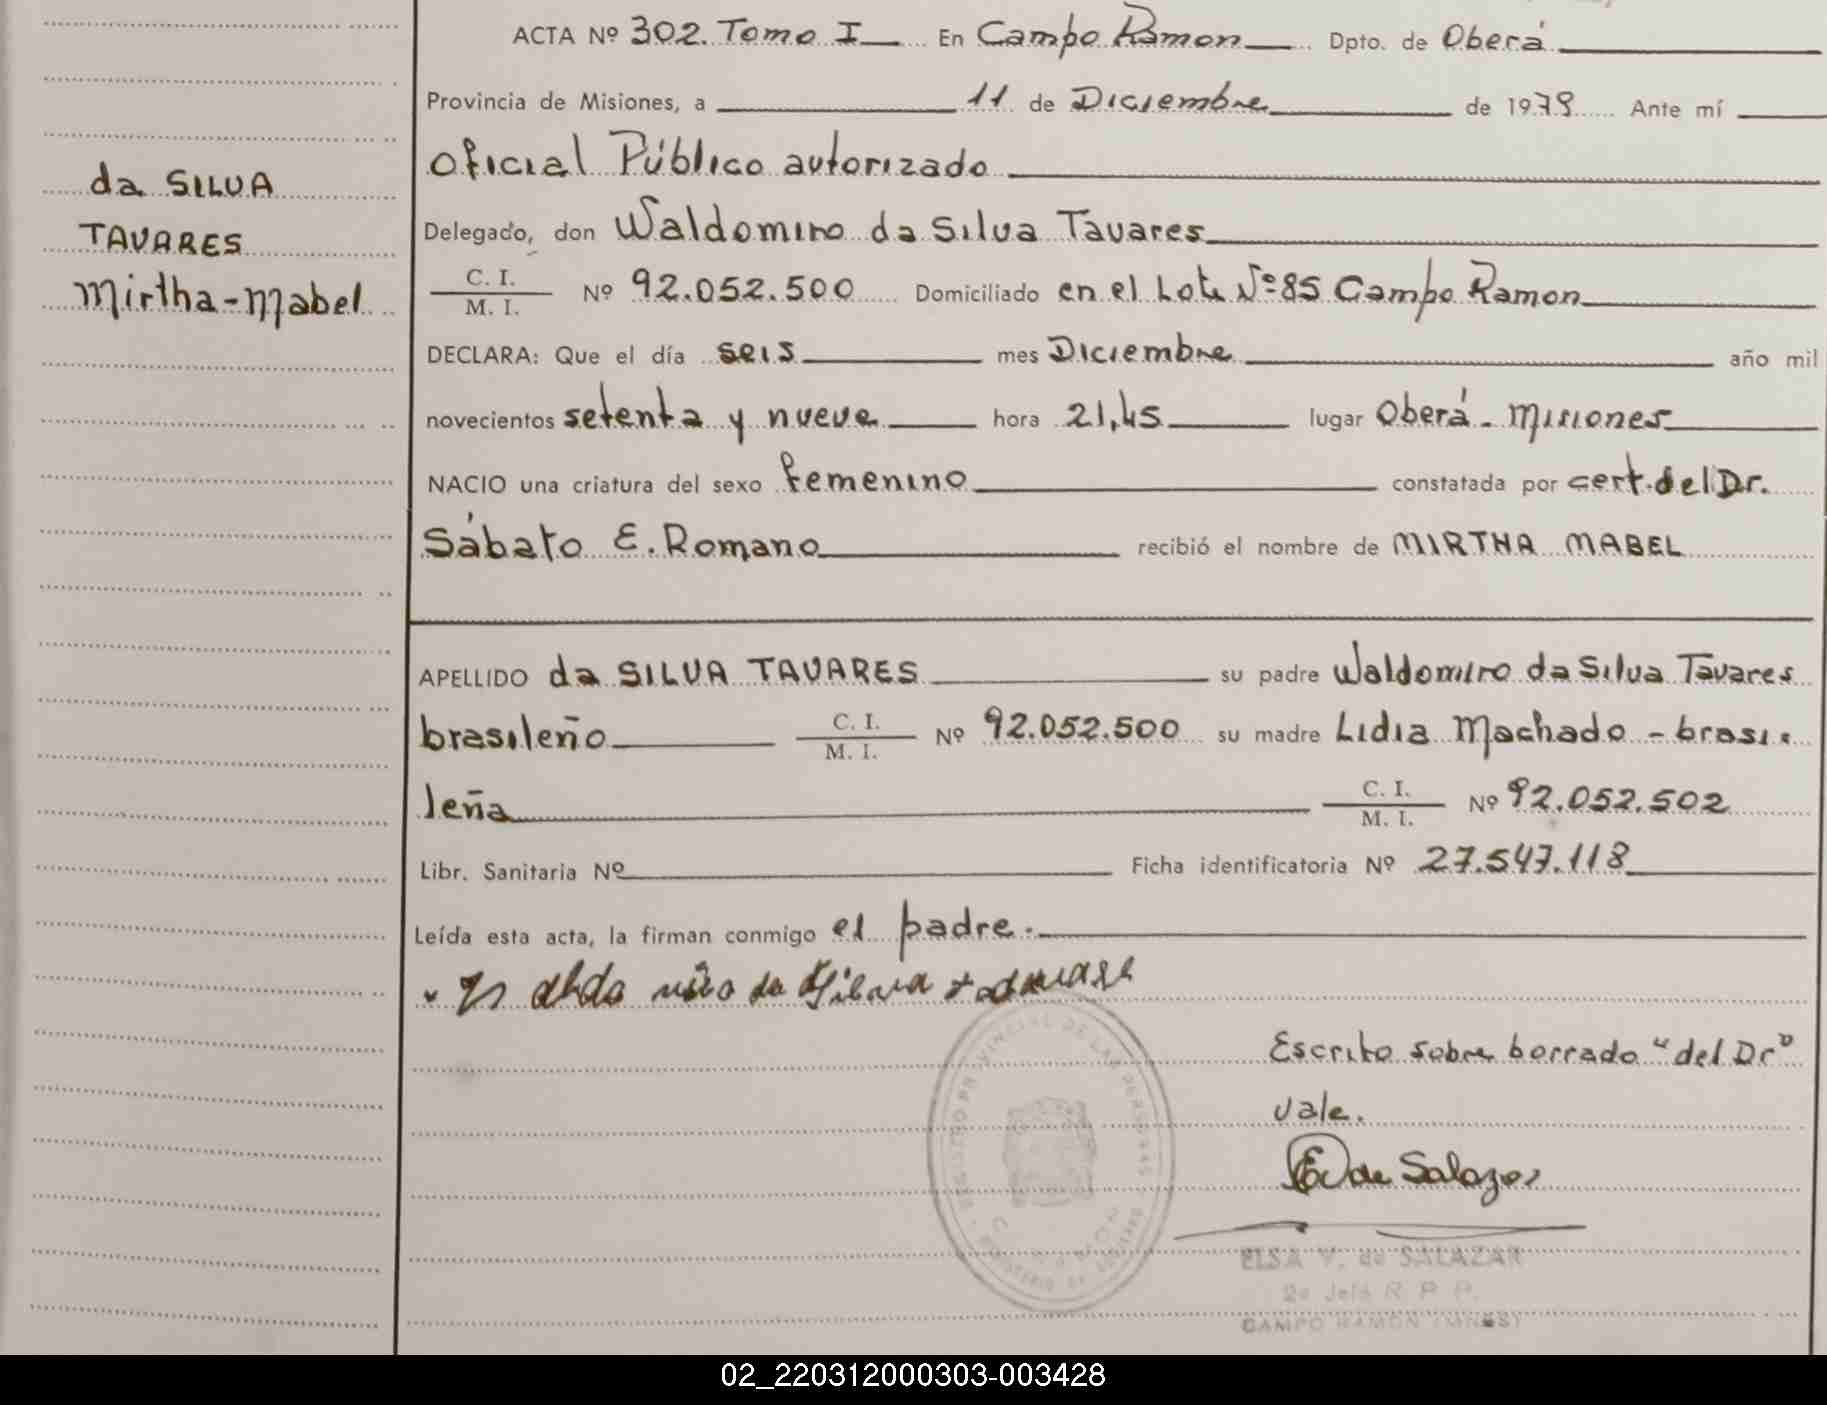 da SILVA
TAVARES
Mirtha-Mabel
ACTA Nº 302. Tomo I En Campo Ramon Dpto. de Oberá
Provincia de Misiones, a 11 de Diciembre de 1979 Ante mí
Oficial Público autorizado
Delegado, don Waldomiro da Silva Tavares
C. I.
M. I. Nº 92.052.500 Domiciliado en el Lote Nº 85 Campo Ramon
DECLARA: Que el día seis mes Diciembre año mil
novecientos setenta y nueve hora 21,45 lugar Oberá - Misiones
NACIO una criatura del sexo femenino constatada por cert. del Dr.
Sábato E. Romano recibió el nombre de MIRTHA MABEL
APELLIDO da SILVA TAVARES su padre Waldomiro da Silva Tavares
brasileño C. I. M. I. Nº 92.052.500 su madre Lidia Machado - brasi-
leña C. I. M. I. Nº 92.052.502
Libr. Sanitaria Nº Ficha identificatoria Nº 27.547.118
Leída esta acta, la firman conmigo el padre.
Escrito sobre borrado "del Dr"
Vale.
de Salazar
ELSA V. de SALAZAR
2º Jefe R. P. P.
CAMPO RAMON (MNES)
02_220312000303-003428